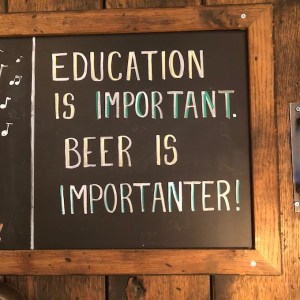 EDUCATION
IS IMPORTANT.
BEER IS
IMPORTANTER!